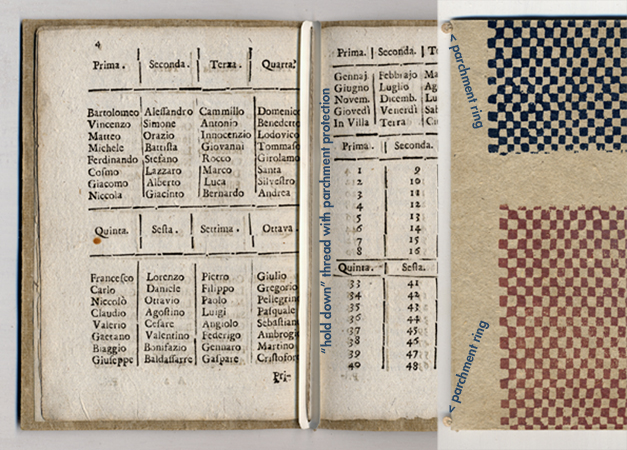 4
Prima. Seconda. Terza. Quarta.
Bartolomeo Alessandro Cammillo Domenic
Vincenzo Simone Antonio Benedetto
Matteo Orazio Innocenzio Lodovico
Michele Battista Giovanni Tommaso
Ferdinando Stefano Rocco Girolamo
Cosmo Lazzaro Marco Santa
Giacomo Alberto Luca Silvestro
Niccola Giacinto Bernardo Andrea
Quinta. Sesta. Settima. Ottava.
Francesco Lorenzo Pietro Giulio
Carlo Daniele Filippo Gregorio
Niccolò Ottavio Paolo Pellegrin
Claudio Agostino Luigi Pasquale
Valerio Cesare Angiolo Sebastian
Gaetano Valentino Federigo Ambrogi
Biaggio Bonifazio Gennaro Martino
Giuseppe Baldassarre Gaspare Cristofor
Pri-
"hold down" thread with parchment protection
Prima. Seconda. T
Gennaj. Febbrajo Ma
Giugno Luglio Ag
Novem. Dicemb. Lu
Giovedì Venerdì Sab
In Villa Terra
Prima. Seconda.
1 9
2 10
3 11
4 12
5 13
6 14
7 15
8 16
Quinta. Sesta.
33 41
34 42
35 43
36 44
37 45
38 46
39 47
40 48
< parchment ring
< parchment ring